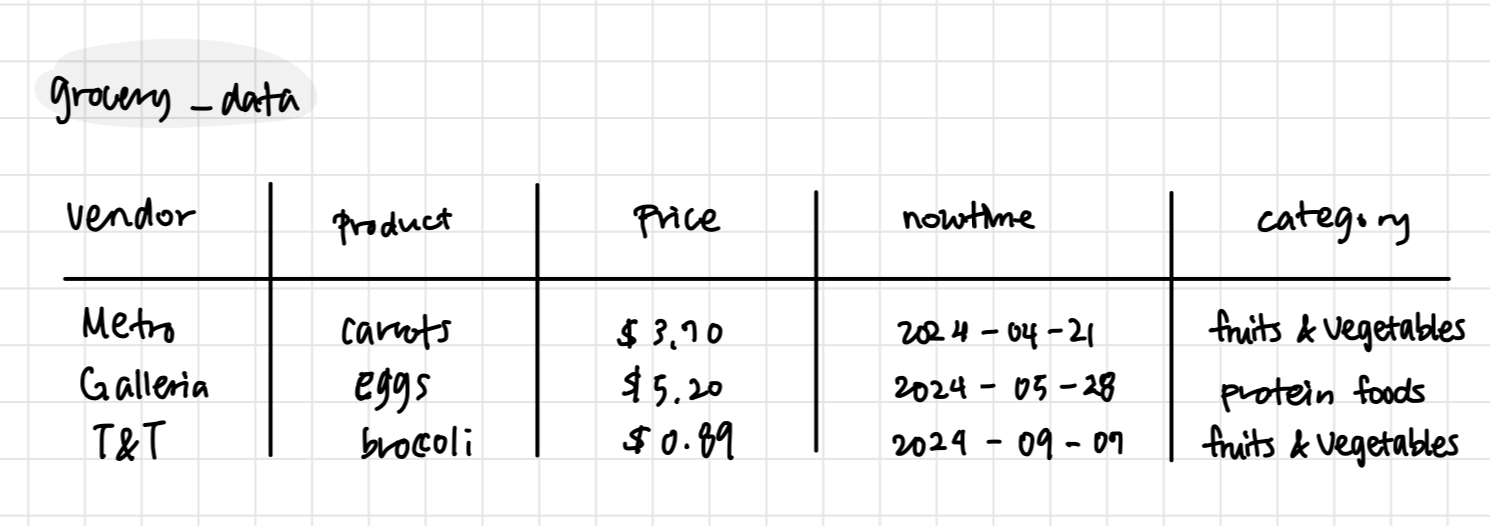 grocery_data
vendor product price nowtime category
Metro carrots $3.70 2024-04-21 fruits & vegetables
Galleria eggs $5.20 2024-05-28 protein foods
T&T broccoli $0.89 2024-09-07 fruits & vegetables